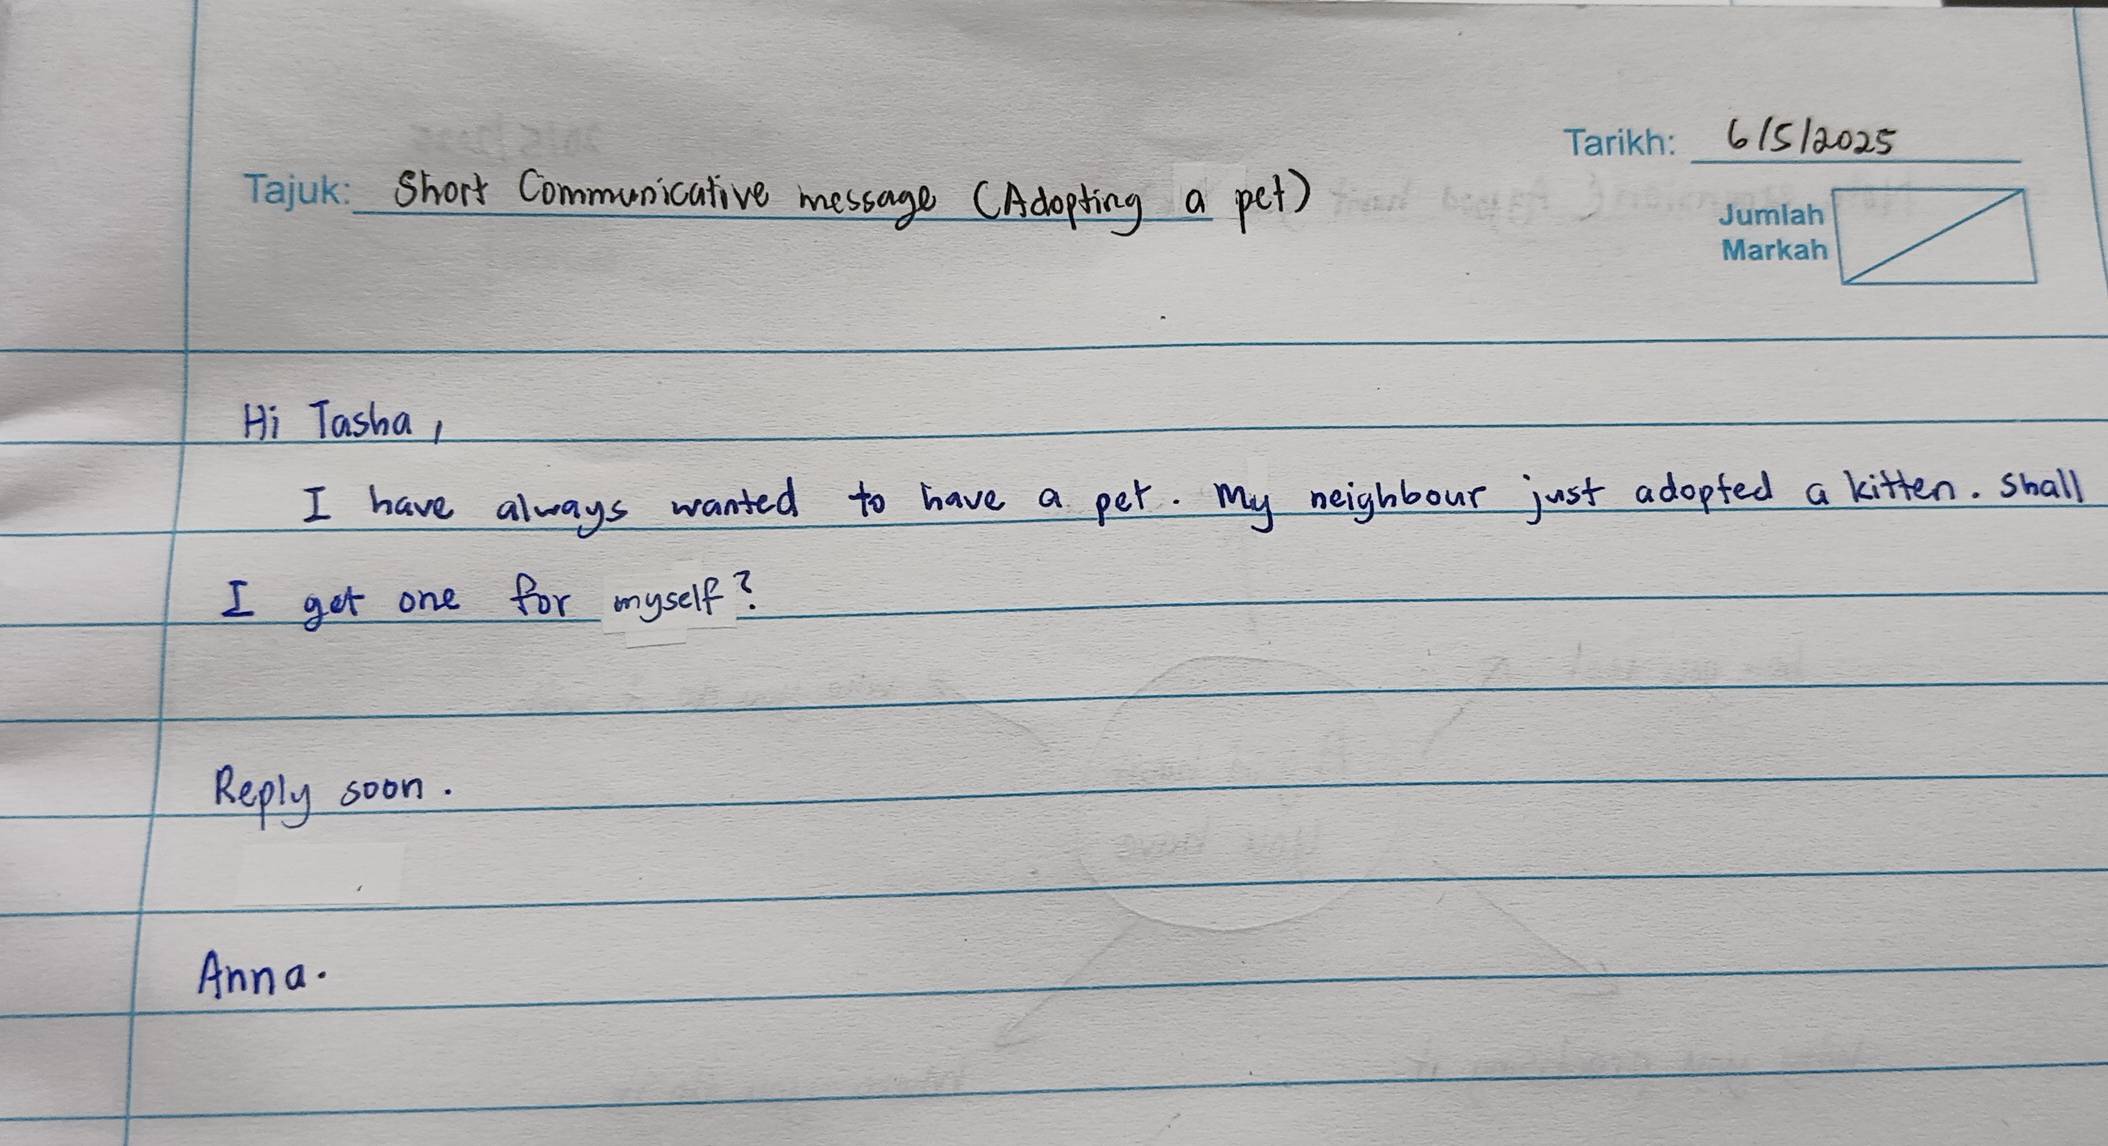 Tarikh: 6/5/2025
Tajuk: Short Communicative message (Adopting a pet)
Jumlah
Markah
Hi Tasha,
I have always wanted to have a pet. My neighbour just adopted a kitten. Shall
I get one for myself?
Reply soon.
Anna.